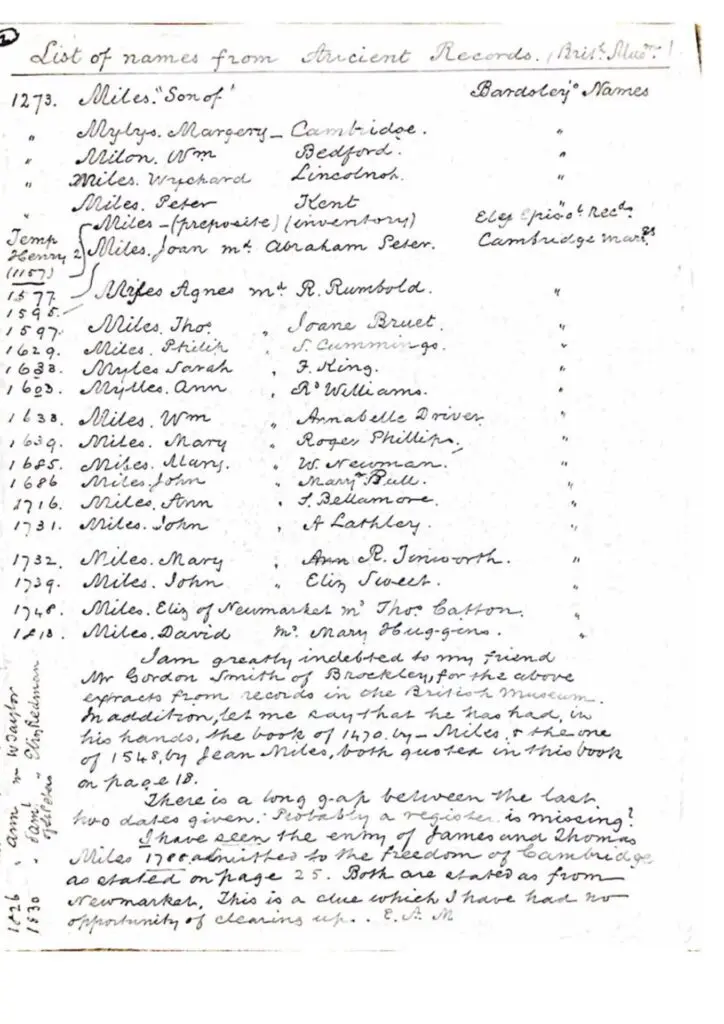 List of names from Ancient Records. (Brit. Mus.)
1273. Miles. "Son of" Bardsley's Names
" Mylys. Margery - Cambridge. "
" Milon. Wm Bedford. "
" Miles. Wychard Lincolnsh. "
" Miles. Peter Kent
Miles - (preposite) (inventory) Eley Episo. Recds.
Temp Henry 2 (1157) Miles. Joan md Abraham Peter. Cambridge Mar.
1577 Miles Agnes md R. Rumbold. "
1595.
1597. Miles. Thos. " Joane Bruet. "
1629. Miles. Philip " S. Cummings. "
1633. Myles Sarah " F. King. "
1603. Mylles. Ann " Rd Williams. "
1633. Miles. Wm " Annabelle Driver "
1639. Miles. Mary " Roger Phillips. "
1685. Miles. Mary. " W. Newman. "
1686 Miles. John " Mary Bull. "
1716. Miles. Ann " Bellamore. "
1731. Miles. John " A Lathley. "
1732. Miles. Mary " Ann R. "
1739. Miles. John " Eliz Sweet. "
1748. Miles. Eliz of Newmarket md Thos. Catton. "
1818. Miles. David md Mary Huggins. "
I am greatly indebted to my friend
Mr Gordon Smith of Brockley, for the above
extracts from records in the British Museum.
In addition, let me say that he has had, in
his hands, the book of 1470. by - Miles, & the one
of 1548, by Jean Miles, both quoted in this book
on page 18.
There is a long gap between the last
two dates given. Probably a register is missing?
I have seen the entry of James and Thomas
Miles 1788 admitted to the freedom of Cambridge
as stated on page 25. Both are stated as from
Newmarket. This is a clue which I have had no
opportunity of clearing up. . E. A. M
1826 " Ann m W Taylor
1830 " Saml " Eliz Redman